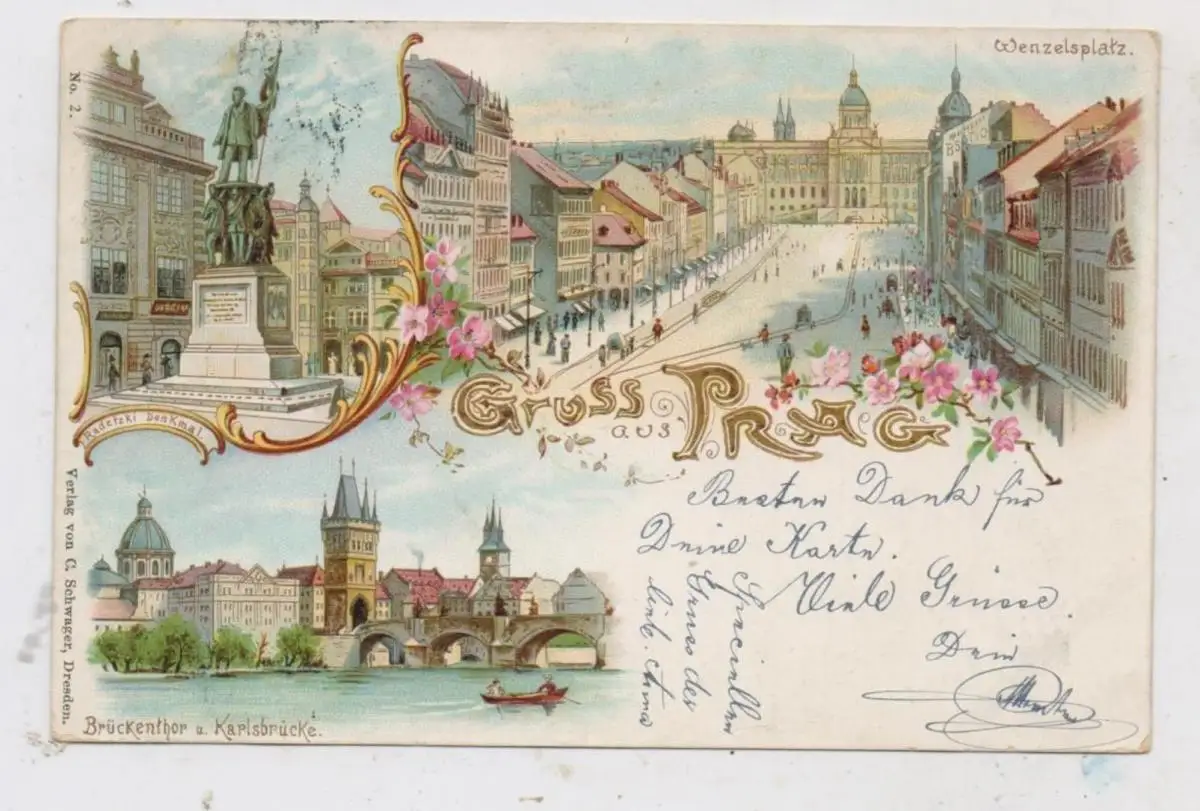 Wenzelsplatz.
No. 2.
Radetzki Denkmal.
Gruss aus Prag
Besten Dank für
Deine Karte.
Viele Grüsse.
Dein
Speciellen
Gruss der
lieb. Anna
Verlag von C. Schwager, Dresden.
Brückenthor u. Karlsbrücke.